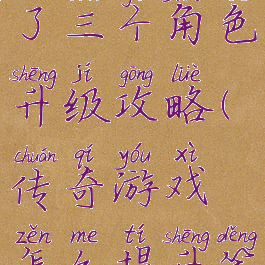 了三个角色
shēng jí gōng lüè
升级攻略(
chuán qí yóu xì
传奇游戏
zěn me tí shēng děng
怎么提升等